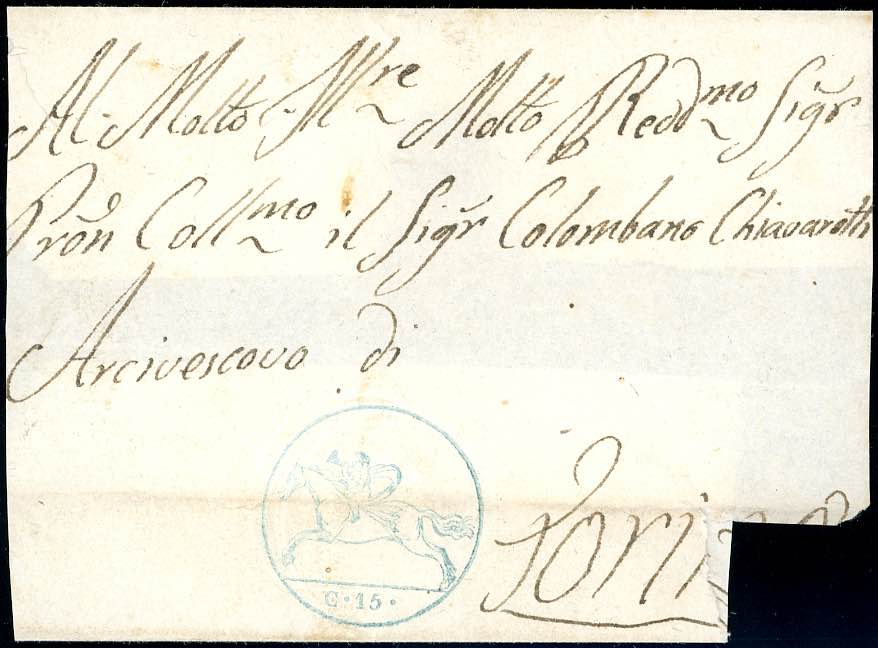 Al Molto Ill.re Molto Redd.mo Sig.r
Pron Coll.mo il Sig.r Colombano Chiavarotti
Arcivescovo di
Torino
C·15·